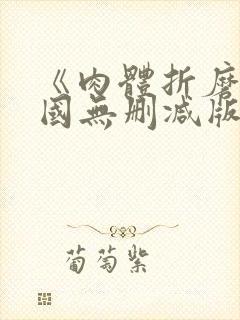 《肉體折磨
國無删减版
葡萄紫